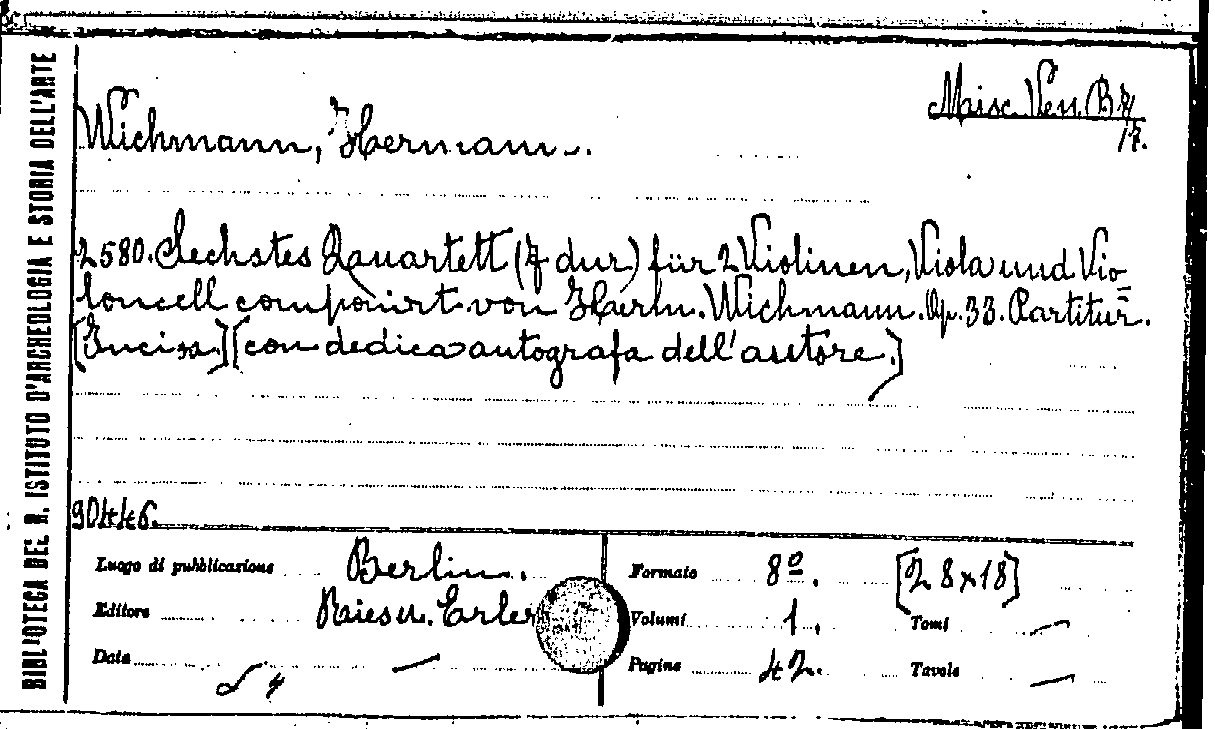 BIBLIOTECA DEL R. ISTITUTO D'ARCHEOLOGIA E STORIA DELL'ARTE
Wichmann, Hermann.
2580. Sechstes Quartett (F dur) für 2 Violinen, Viola und Vio
loncell componirt von Herm. Wichmann. Op. 33. Partitur.
[Incisa.] [con dedica autografa dell'autore.]
90446.
Luogo di pubblicazione Berlin.
Editore Ries u. Erler
Data —
Formato 8º. [28x18]
Volumi 1. Tomi —
Pagine 42. Tavole —